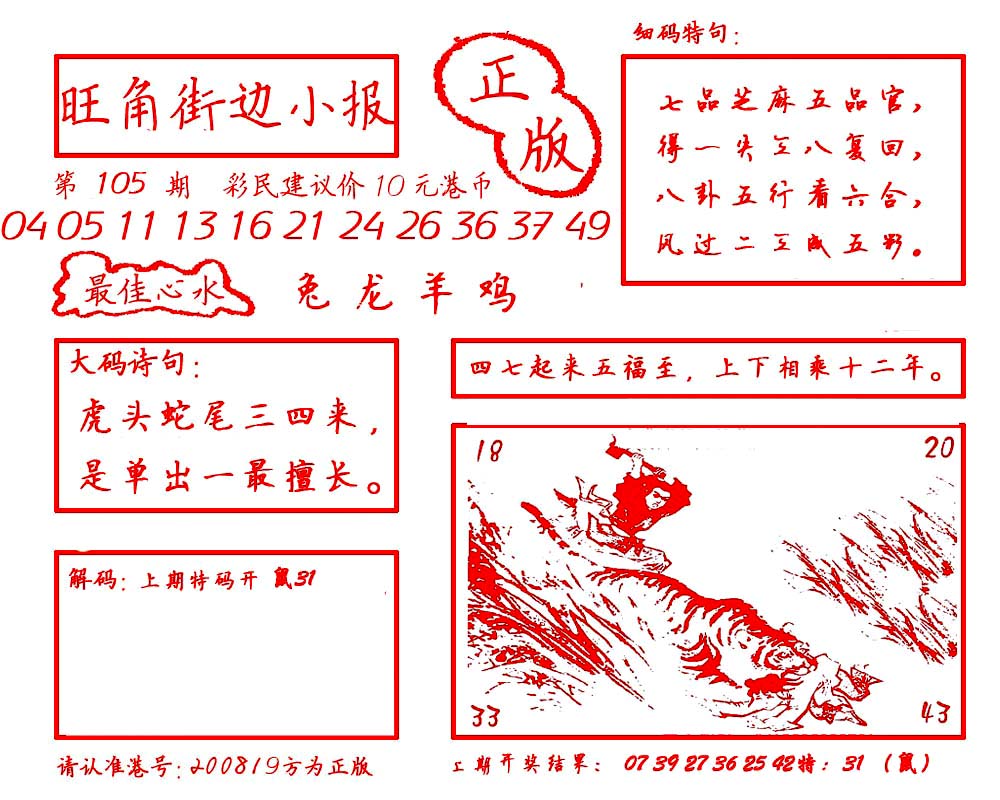 细码特句:
旺角街边小报
正版
七品芝麻五品官,
得一失五八复回,
八卦五行看六合,
风过二五成五彩。
第 105 期 彩民建议价10元港币
04 05 11 13 16 21 24 26 36 37 49
最佳心水
兔龙羊鸡
大码诗句:
虎头蛇尾三四来,
是单出一最擅长。
四七起来五福至,上下相乘十二年。
18
20
33
43
解码:上期特码开 鼠31
请认准港号:200819方为正版
上期开奖结果: 07 39 27 36 25 42特: 31 (鼠)